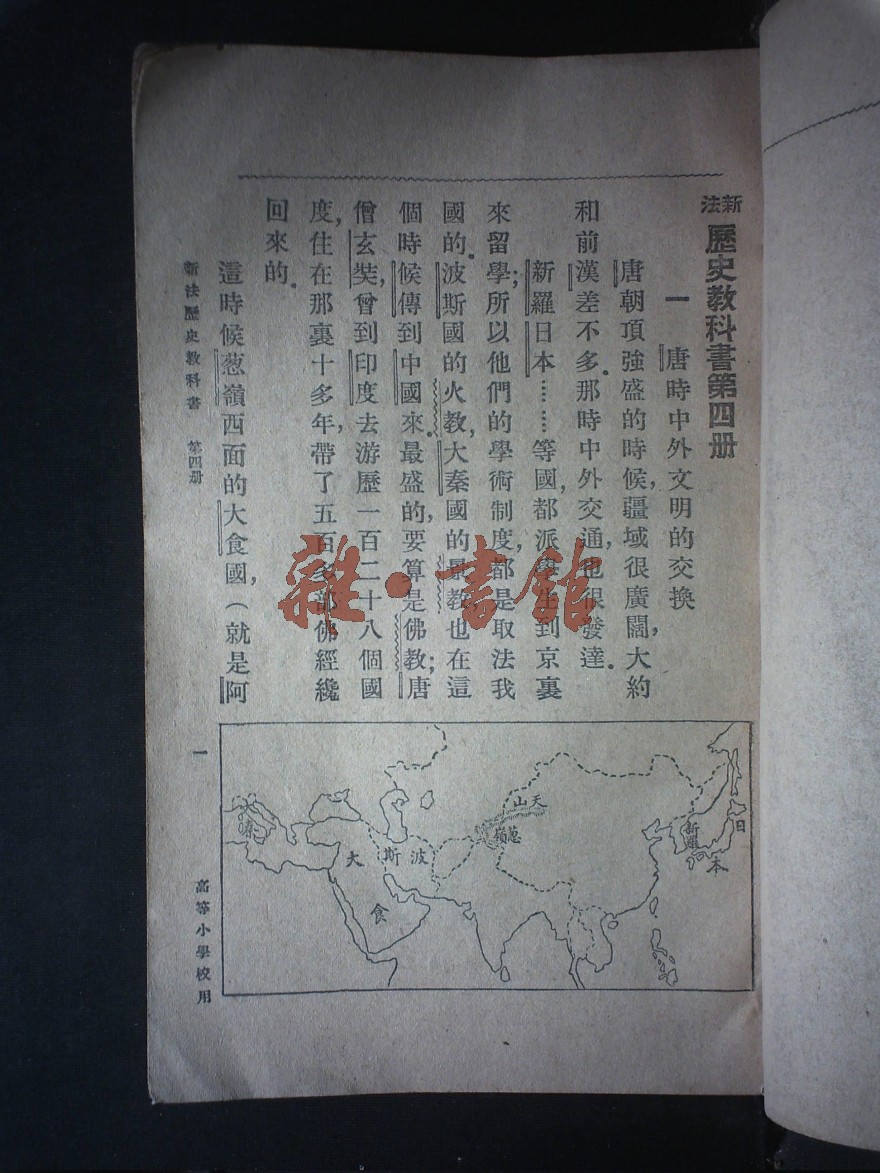 新法歷史教科書第四册
一　唐時中外文明的交換
唐朝頂強盛的時候，疆域很廣闊，大約
和前漢差不多。那時中外交通，也很發達。
新羅日本……等國，都派學生到京裏
來留學；所以他們的學術制度，都是取法我
國的。波斯國的火教，大秦國的景教，也在這
個時候傳到中國來。最盛的，要算是佛教；唐
僧玄奘，曾到印度去游歷一百二十八個國
度，住在那裏十多年，帶了五百多部佛經纔
回來的。
這時候葱嶺西面的大食國，（就是阿
新法歷史教科書　第四册
一
高等小學校用
天山
葱嶺
新羅
日本
波斯
大食
秦
雜·書館